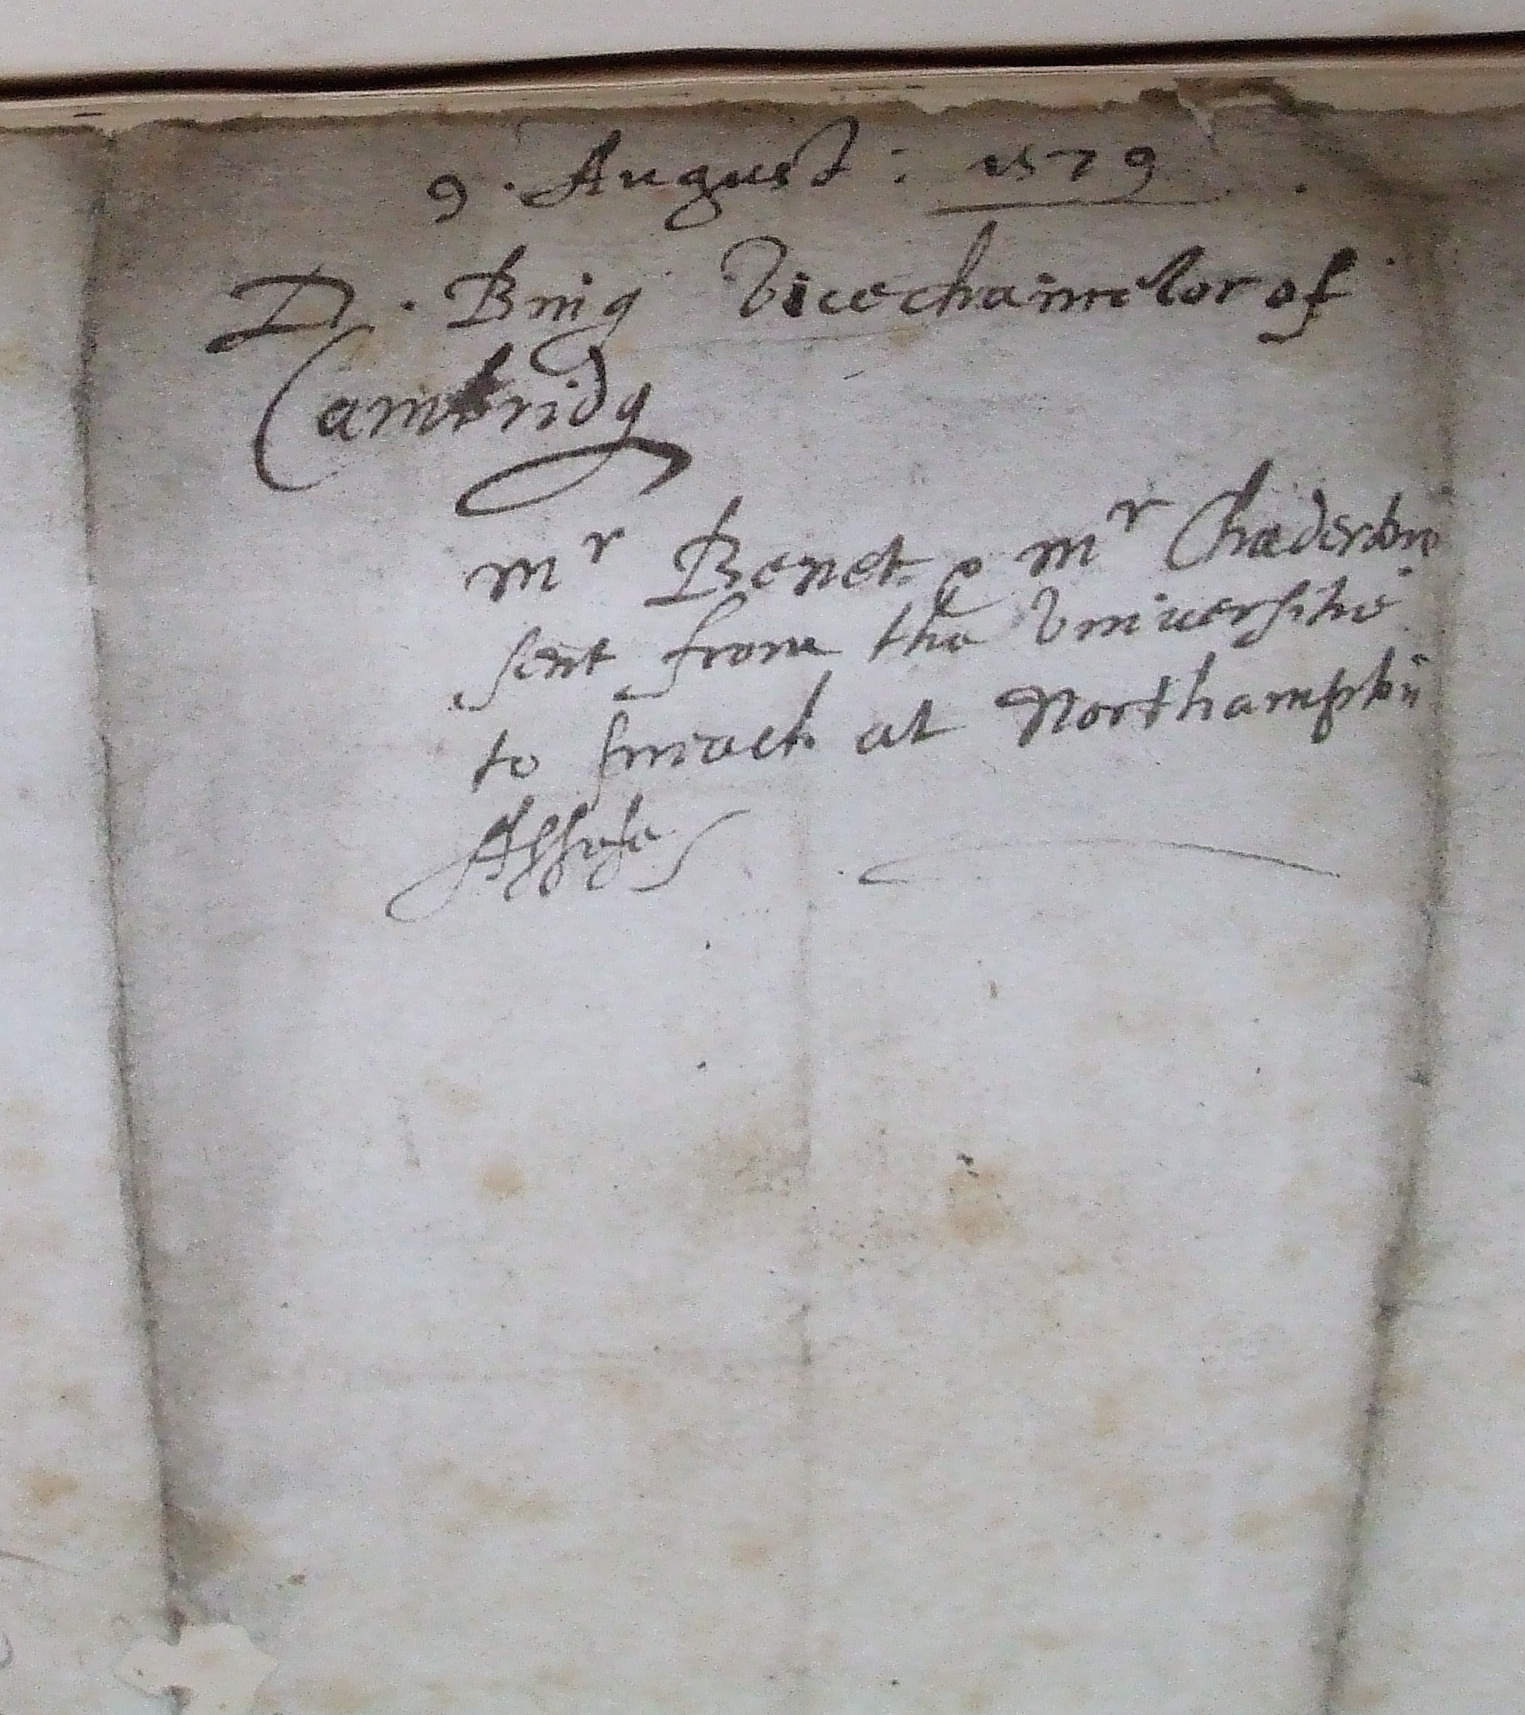 9. August: 1579
D. Bing Vicechauncelor of
Cambridg
mr Benet & mr Chaderton
sent from the Vniuersitie
to preach at Northampton
Assises